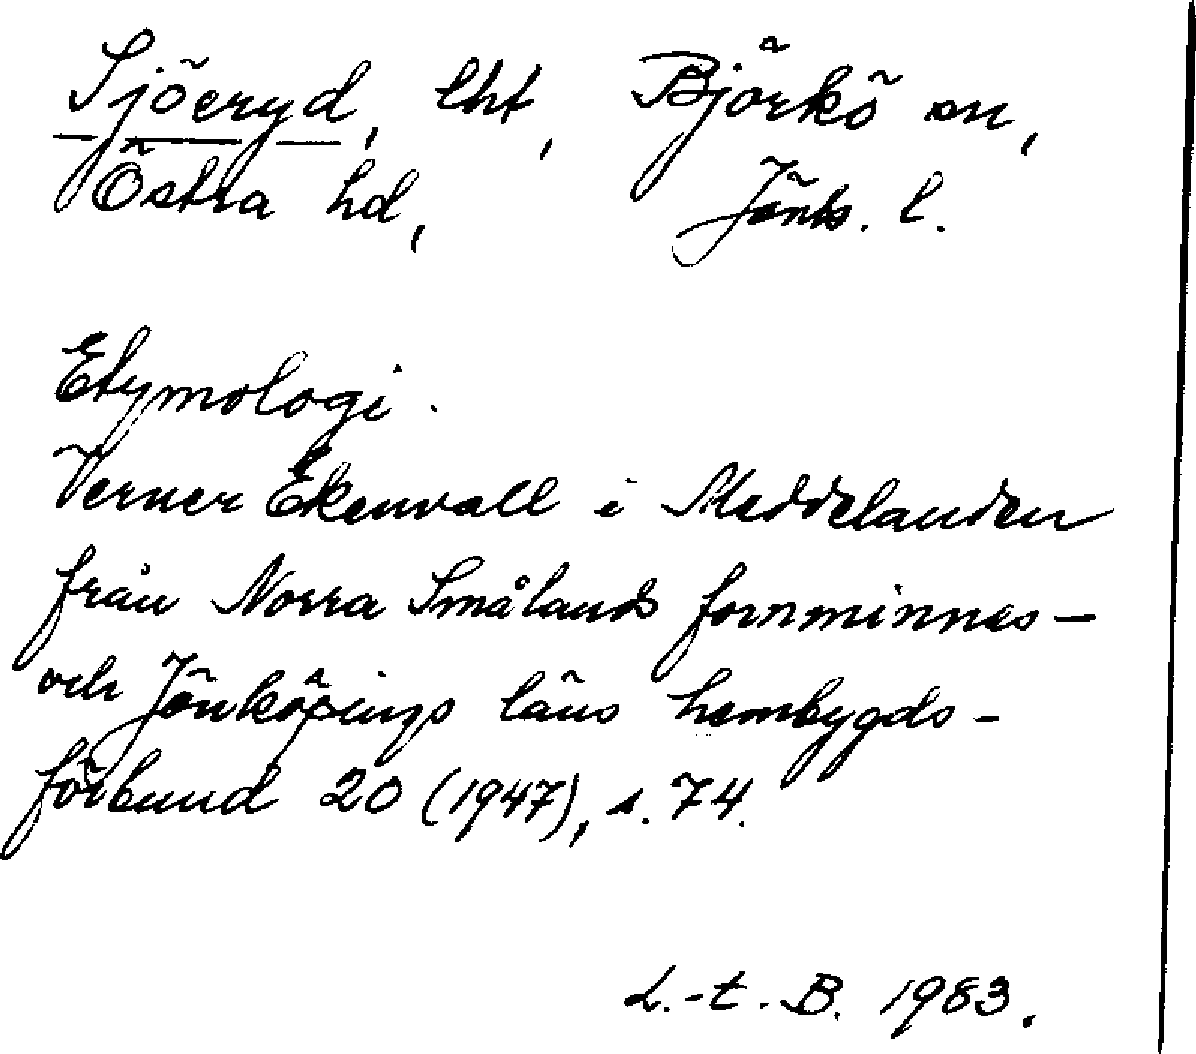 Sjöeryd, lht, Björkö sn,
Östra hd, Jönk. l.
Etymologi.
Verner Ekenvall i Meddelanden
från Norra Smålands fornminnes-
och Jönköpings läns hembygds-
förbund 20 (1947), s. 74.
L.-t. B. 1983.